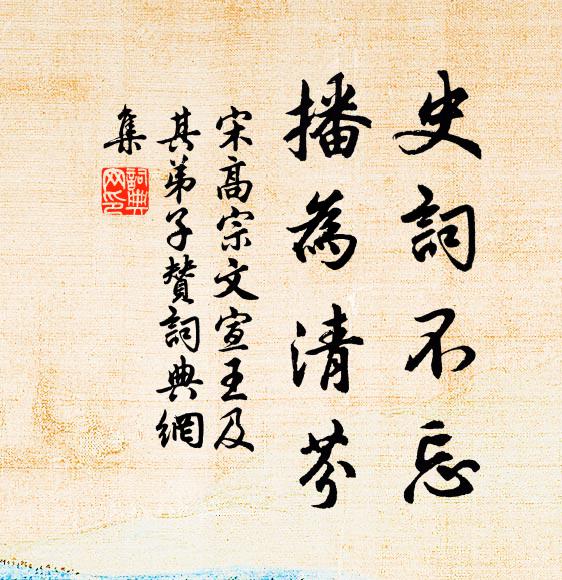 史詞不忘
播為清芬
宋高宗文宣王及
其弟子贊詞典網
集
詞典
网印